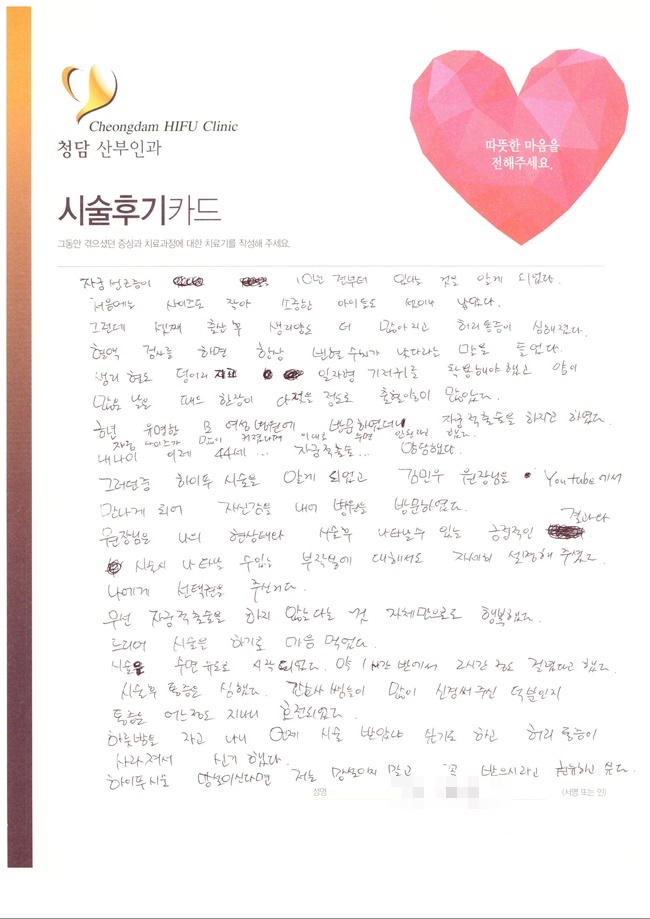 Cheongdam HIFU Clinic
청담 산부인과
따뜻한 마음을
전해주세요.
시술후기카드
그동안 겪으셨던 증상과 치료과정에 대한 치료기를 작성해 주세요.
자궁선근증이 10년 전부터 있다는 것을 알게 되었다.
처음에는 사이즈도 작아 소중한 아이들도 셋이나 낳았다.
그런데 셋째 출산 후 생리양도 더 많아지고 허리통증이 심해졌다.
혈액 검사를 하면 항상 빈혈 수치가 낮다라는 말을 들었다.
생리 혈도 덩어리 일자형 기저귀를 착용해야 했고 양이
많은 날은 패드 한장이 다 젖을 정도로 출혈이 많았다.
유명한 모 여성병원에 방문하였더니 자궁적출술을 하자고 하였다.
자궁 사이즈가 많이 커졌다며 이대로 두면 안된다 했다.
내 나이 이제 44세... 자궁적출술... 암담했다.
그러던중 하이푸 시술을 알게 되었고 김민우 원장님을 YouTube에서
만나게 되어 자신감을 내어 병원을 방문하였다.
원장님은 나의 현상태와 시술후 나타날수 있는 긍정적인 결과와
시술시 나타날 수 있는 부작용에 대해서도 자세히 설명해 주셨고
나에게 선택권을 주셨다.
우선 자궁적출술을 하지 않는다는 것 자체만으로 행복했다.
드디어 시술을 하기로 마음 먹었다.
시술은 수면 유도로 시작되었다. 약 1시간 반에서 2시간 정도 걸렸다고 했다.
시술후 통증은 심했다. 간호사 쌤들이 많이 신경써 주신 덕분인지
통증은 어느정도 지나니 호전되었다.
하룻밤을 자고 나니 언제 시술 받았나 싶기도 하고 허리 통증이
사라져서 신기 했다.
하이푸시술 망설이신다면 저는 망설이지 말고 꼭 받으시라고 권유하고 싶다.
성명
(서명 또는 인)